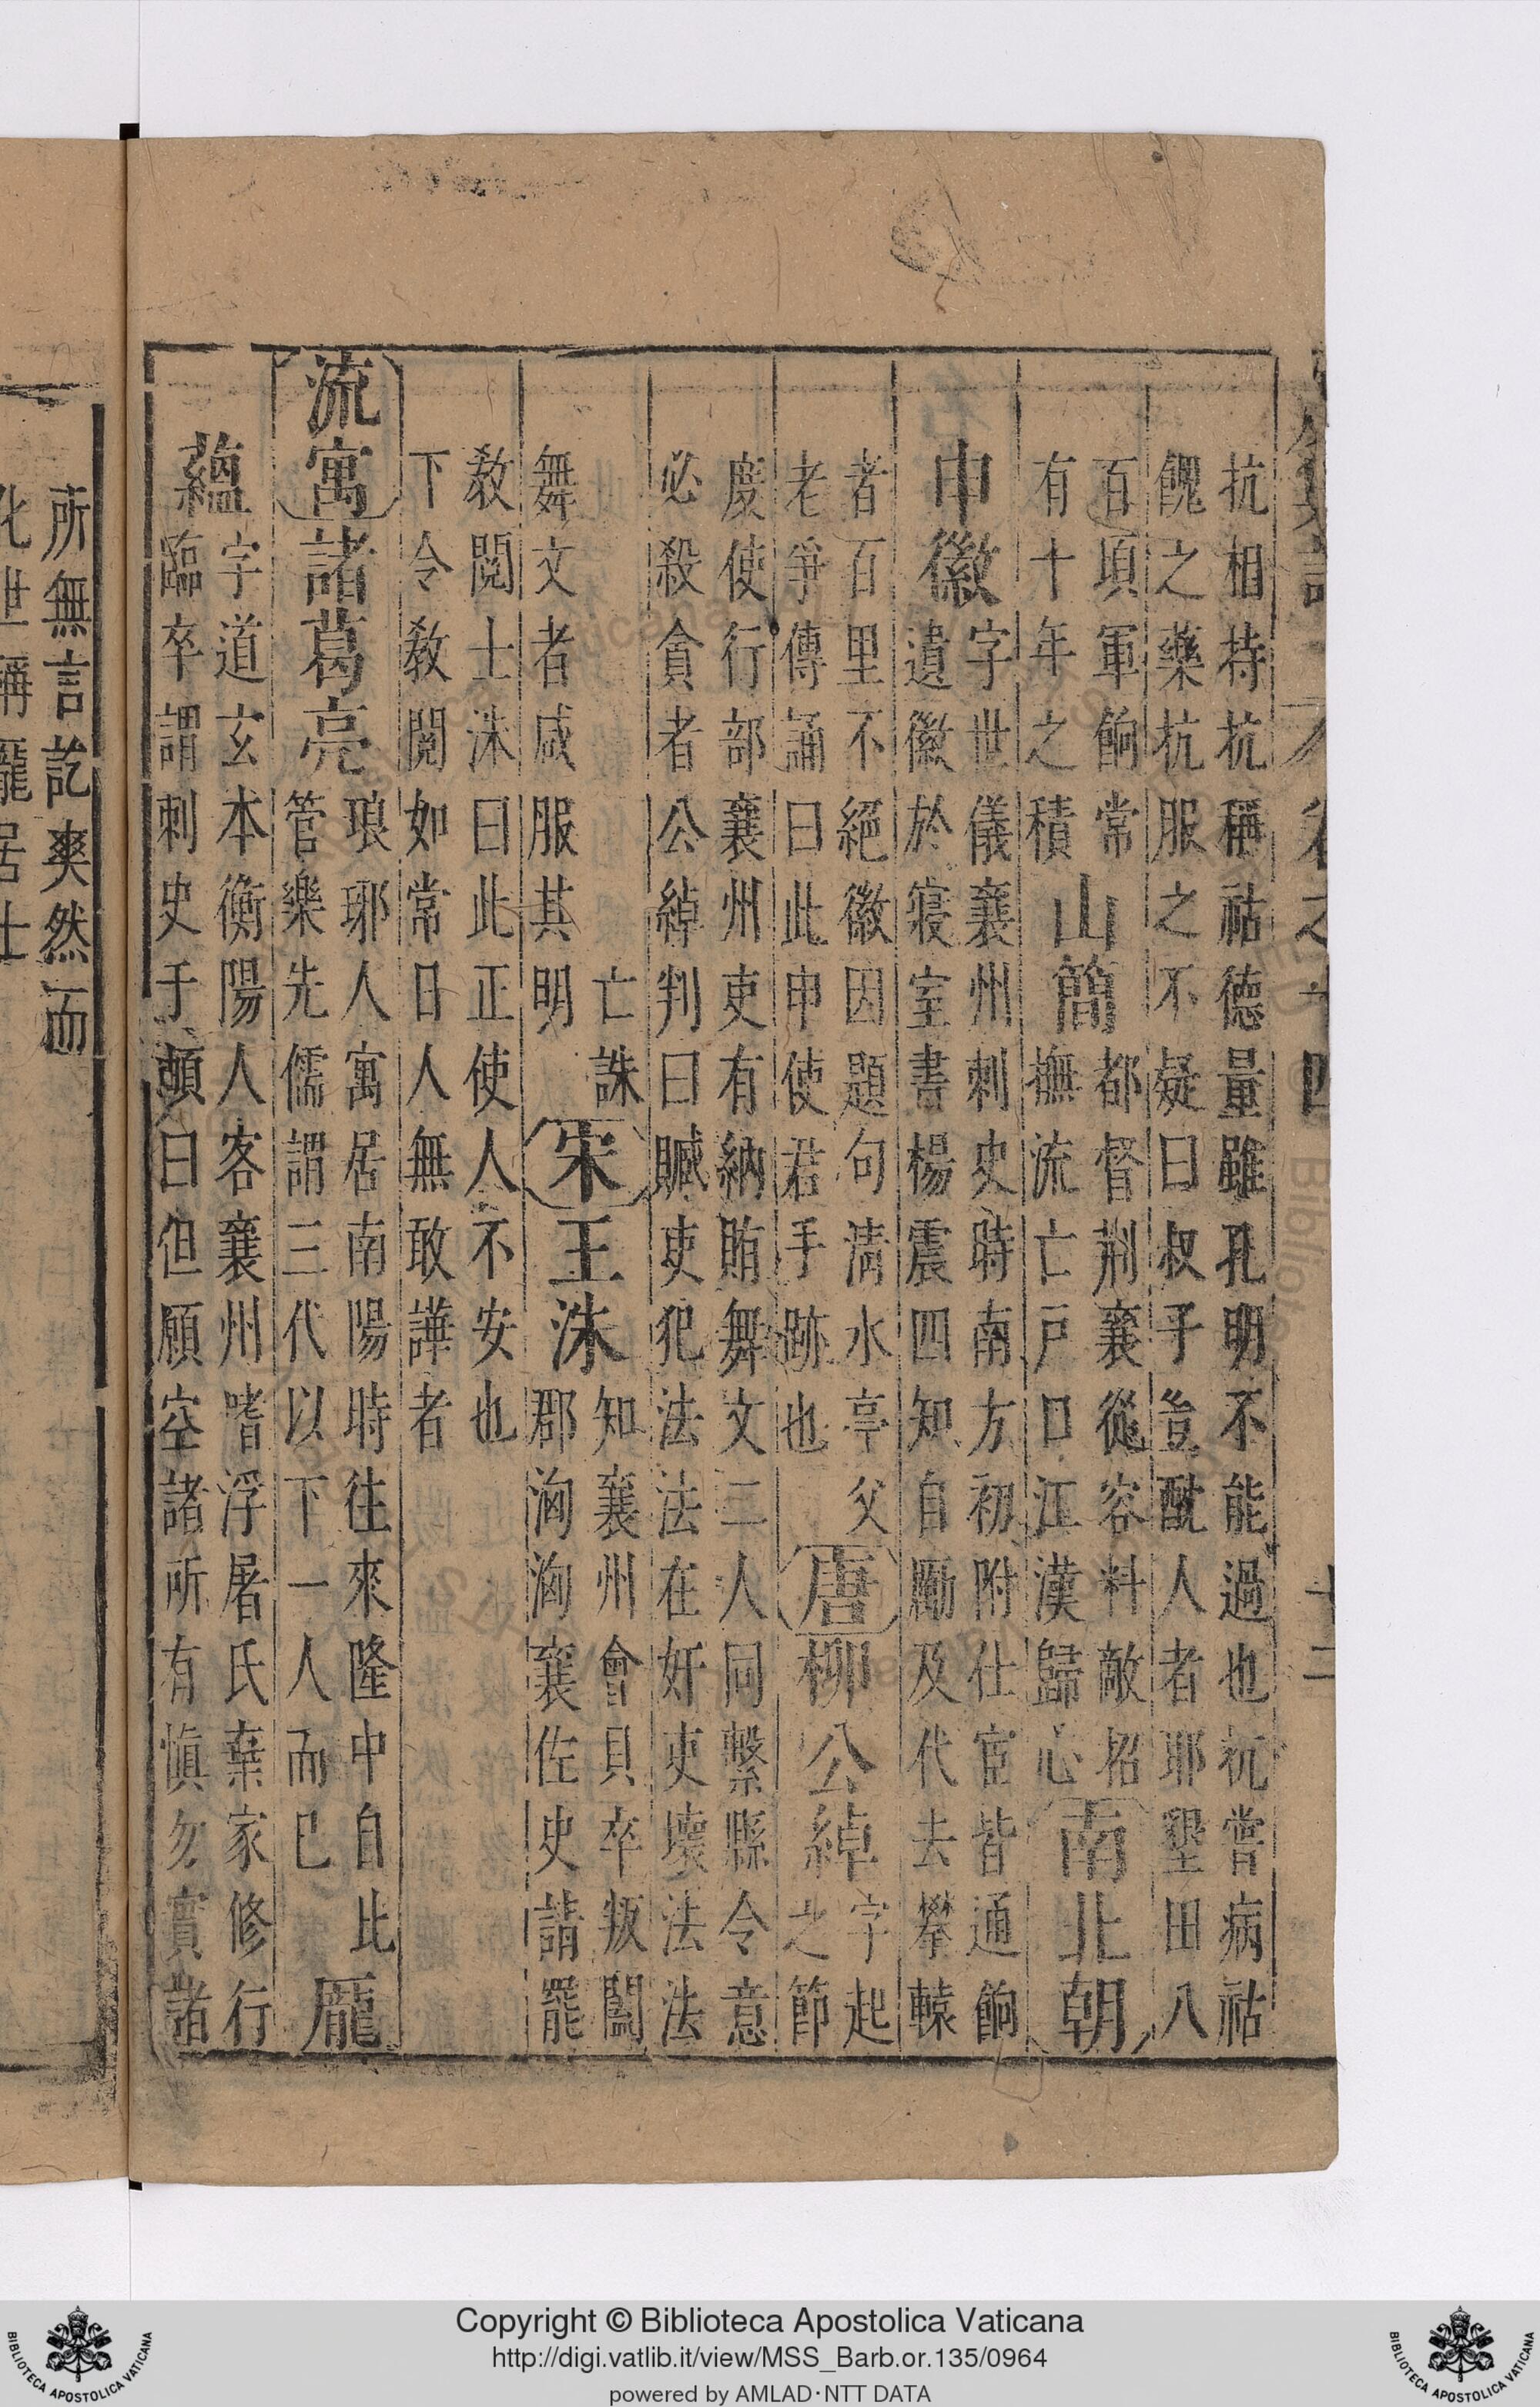 卷之十四 十二
抗相持抗稱祜德量雖孔明不能過也抗嘗病祜
餽之藥抗服之不疑曰叔子豈酖人者耶墾田八
百頃軍餉常
有十年之積
山簡
都督荆襄從容料敵招
撫流亡戸口江漢歸心
南北朝
申徽
字世儀襄州刺史時南方初附仕宦皆通餉
遺徽於寢室書楊震四知自勵及代去攀轅
者百里不絕徽因題句淸水亭父
老爭傳誦曰此申使君手跡也
唐
柳公綽
字起
之節
度使行部襄州吏有納賄舞文二人同繫縣令意
必殺貪者公綽判曰贓吏犯法法在奸吏壞法法
亡誅
舞文者咸服其明
宋
王洙
知襄州會貝卒叛闔
郡洶洶襄佐史請罷
教閱士洙曰此正使人不安也
下令教閱如常日人無敢譁者
流寓
諸葛亮
琅耶人寓居南陽時往來隆中自比
管樂先儒謂三代以下一人而已
龐
蘊
字道玄本衡陽人客襄州嗜浮屠氏棄家修行
臨卒謂刺史于頔曰但願空諸所有愼勿實諸
所無言訖爽然而
化世稱龐居士
Copyright © Biblioteca Apostolica Vaticana
http://digi.vatlib.it/view/MSS_Barb.or.135/0964
powered by AMLAD·NTT DATA
BIBLIOTECA APOSTOLICA VATICANA
BIBLIOTECA APOSTOLICA VATICANA